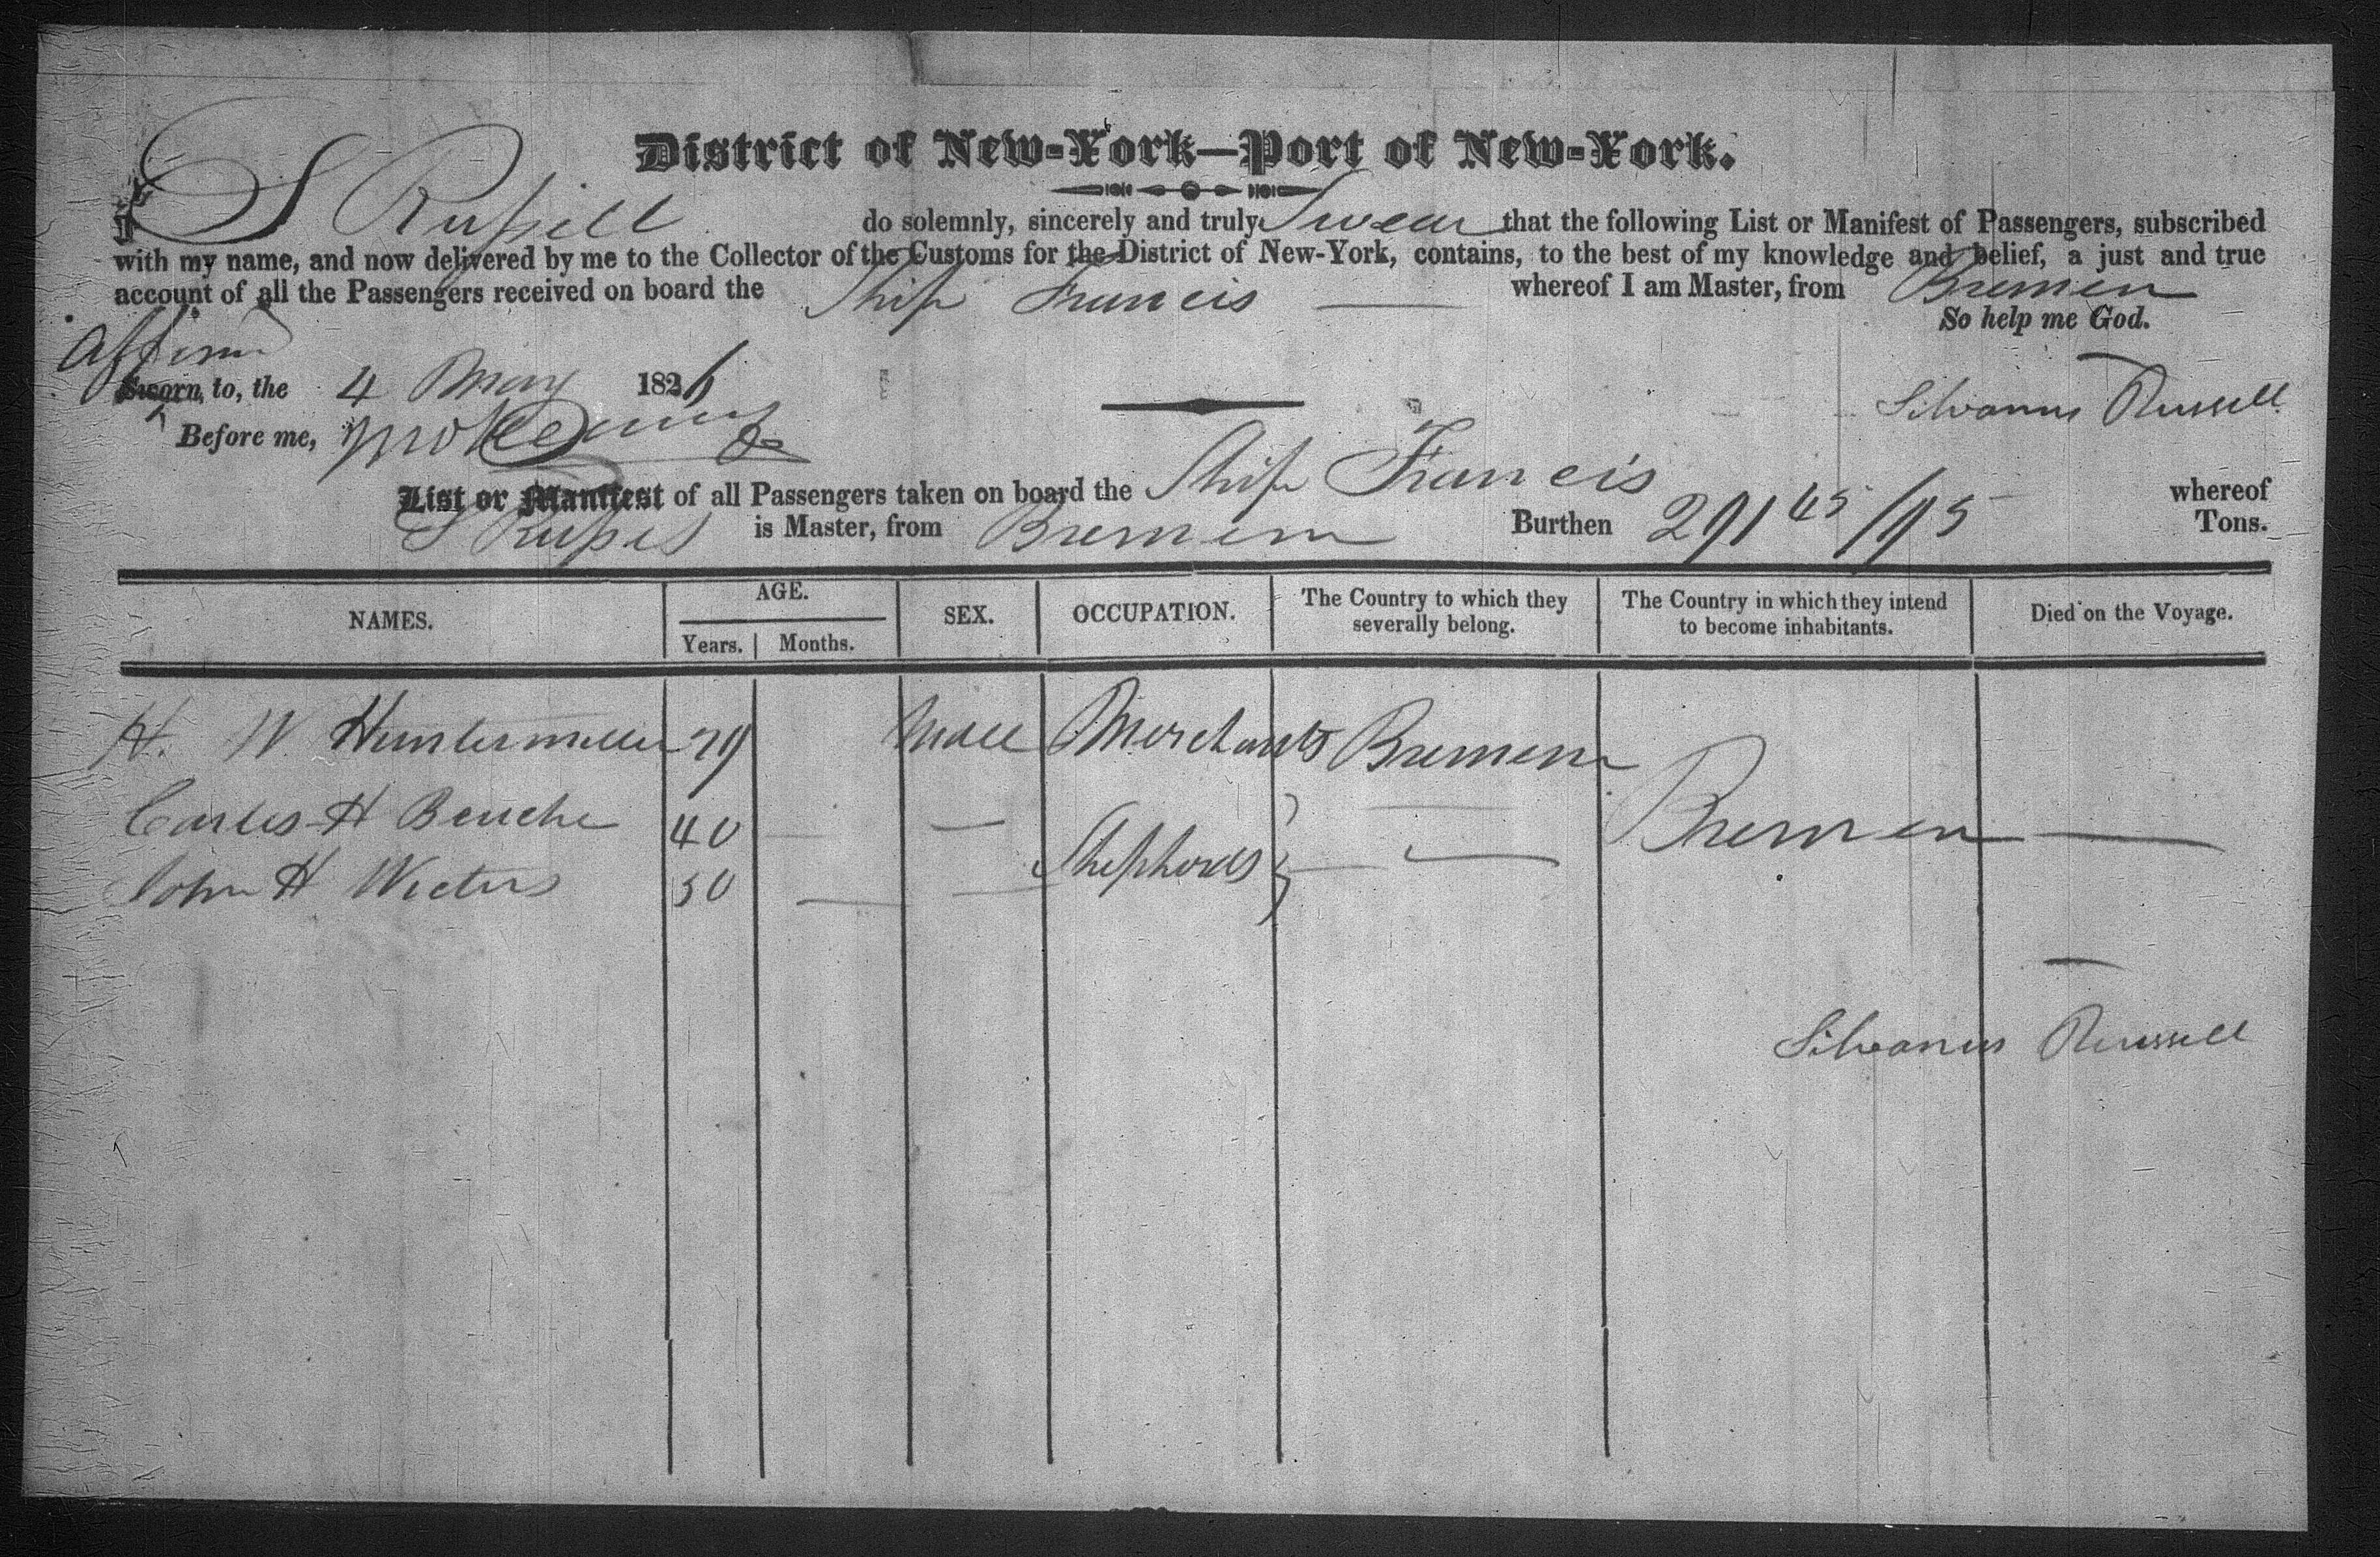 District of New-York—Port of New-York.
I S Russell do solemnly, sincerely and truly Swear that the following List or Manifest of Passengers, subscribed
with my name, and now delivered by me to the Collector of the Customs for the District of New-York, contains, to the best of my knowledge and belief, a just and true
account of all the Passengers received on board the Ship Francis whereof I am Master, from Bremen
So help me God.
Affirm
Sworn, to, the 4 May 1826 Silvanus Russell
Before me,
List or Manifest of all Passengers taken on board the Ship Francis whereof
S Russel is Master, from Bremen Burthen 291 45/95 Tons.
NAMES. AGE. Years. Months. SEX. OCCUPATION. The Country to which they severally belong. The Country in which they intend to become inhabitants. Died on the Voyage.
H. W. Male Merchants Bremen
Carles H 40 — — Shepherds — Bremen —
John H Wieters — — —
Silvanus Russell